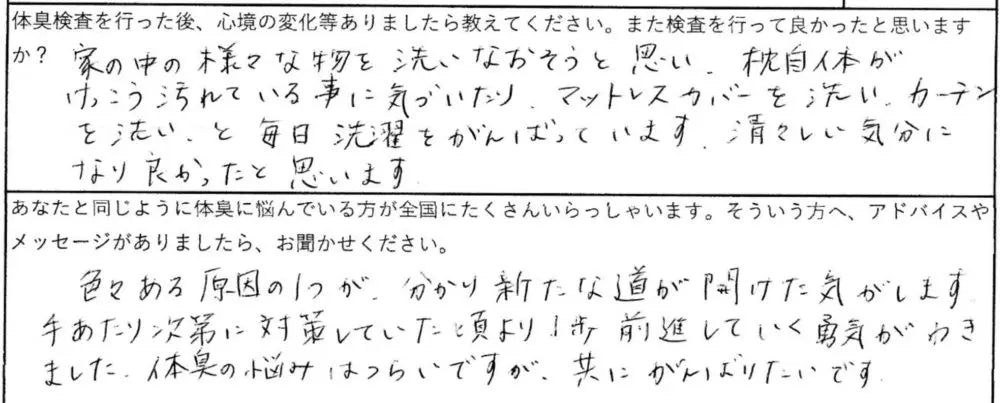 体臭検査を行った後、心境の変化等ありましたら教えてください。また検査を行って良かったと思います
か？ 家の中の様々な物を洗いなおそうと思い、枕自体が
けっこう汚れている事に気づいたり、マットレスカバーを洗い、カーテン
を洗い、と毎日洗濯をがんばっています。清々しい気分に
なり良かったと思います
あなたと同じように体臭に悩んでいる方が全国にたくさんいらっしゃいます。そういう方へ、アドバイスや
メッセージがありましたら、お聞かせください。
色々ある原因の1つが、分かり新たな道が開けた気がします。
手あたり次第に対策していた頃より1歩前進していく勇気がわき
ました。体臭の悩みはつらいですが、共にがんばりたいです。